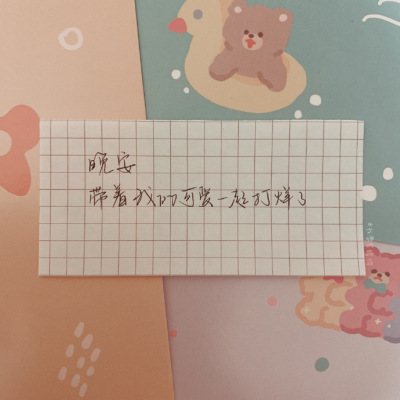 晚安
带着我的可爱一起打烊了